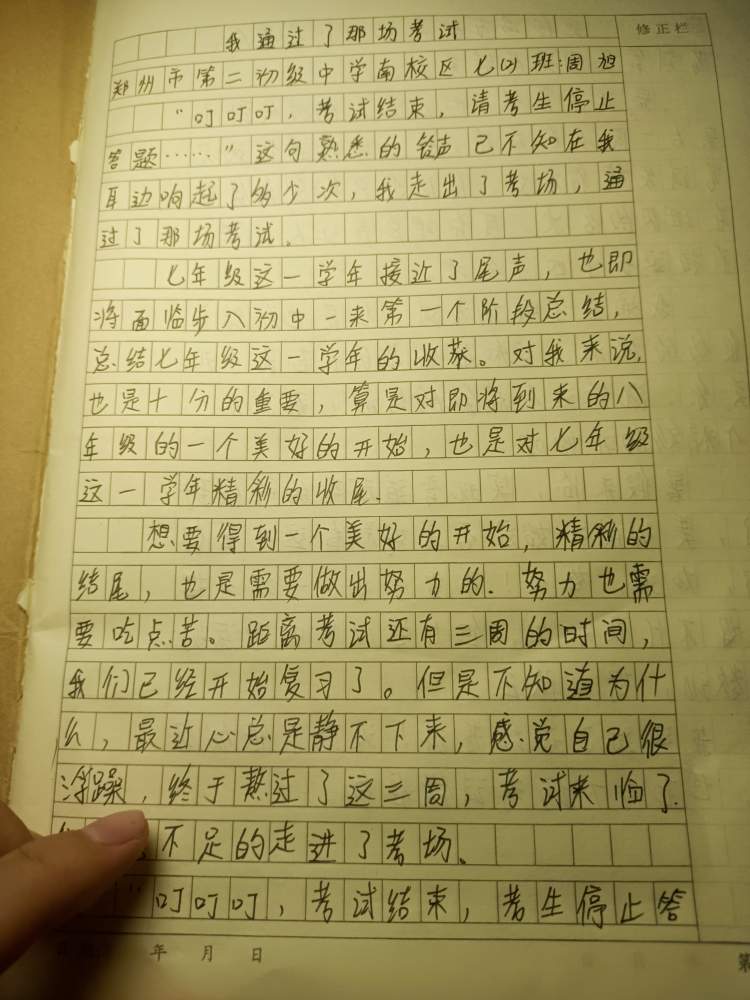 我通过了那场考试
修正栏
郑州市第二初级中学南校区七(2)班:周旭
“叮叮叮，考试结束，请考生停止
答题……”这句熟悉的铃声已不知在我
耳边响起了多少次，我走出了考场，通
过了那场考试。
七年级这一学年接近了尾声，也即
将面临步入初中一来第一个阶段总结，
总结七年级这一学年的收获。对我来说，
也是十分的重要，算是对即将到来的八
年级的一个美好的开始，也是对七年级
这一学年精彩的收尾.
想要得到一个美好的开始，精彩的
结尾，也是需要做出努力的.努力也需
要吃点苦。距离考试还有三周的时间，
我们已经开始复习了。但是不知道为什
么，最近心总是静不下来，感觉自己很
浮躁，终于熬过了这三周，考试来临了.
不足的走进了考场.
“叮叮叮，考试结束，考生停止答
年 月 日
第